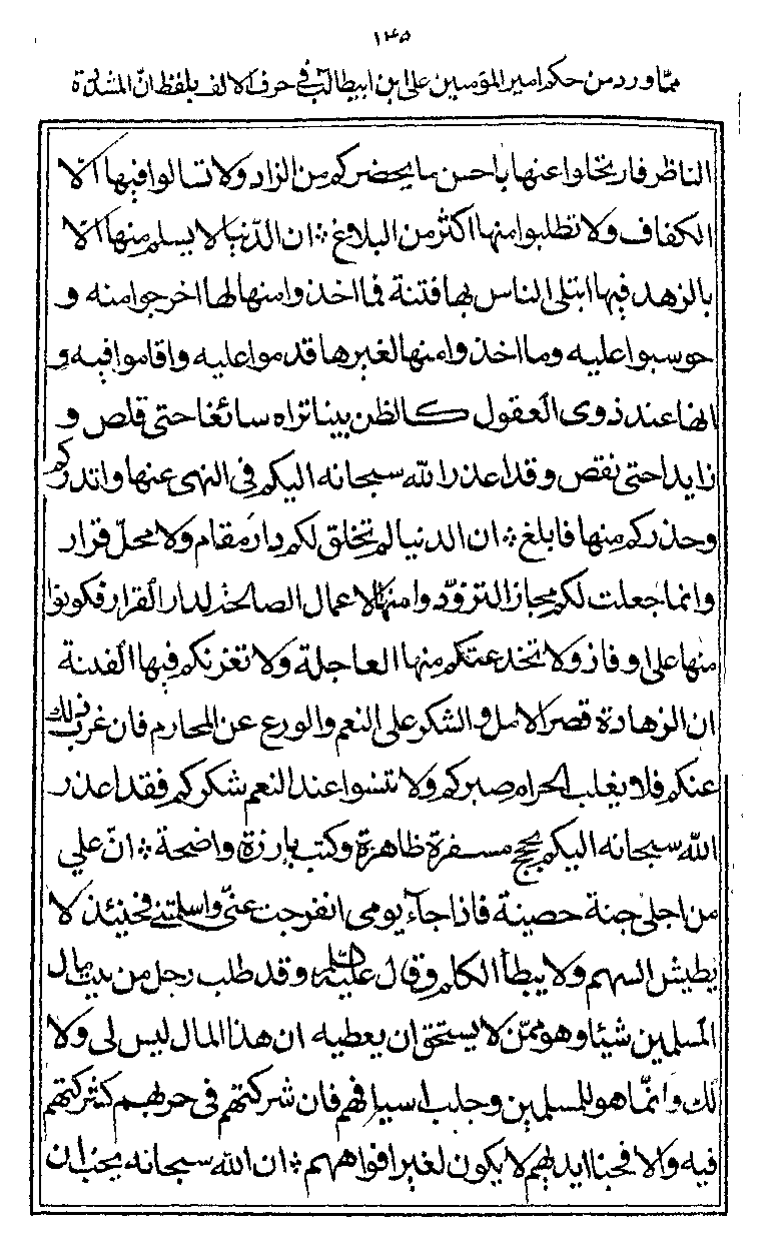 ١٤٥
مما ورد من حكم امير المؤمنين علي ابن ابيطالب في حرف الالف بلفظ انّ المشددة
الناظر فارتحلوا عنها باحسن ما يحضركم من الزاد ولا تسالوا فيها الا
الكفاف ولا تطلبوا منها اكثر من البلاغ ؞ ان الدّنيا لا يسلم منها الا
بالزهد فيها ابتلى الناس بها فتنة فما اخذوا منها لها اخرجوا منه و
حوسبوا عليه وما اخذوا منها لغيرها قدموا عليه واقاموا فيه و
انها عند ذوى العقول كالظل بينا تراه سائغا حتى قلص و
زايدا حتى نقص وقد اعذر الله سبحانه اليكم فى النهى عنها وانذركم
وحذركم منها فابلغ ؞ ان الدنيا لم تخلق لكم دار مقام ولا محلّ قرار
وانما جعلت لكم مجازا لتزوّدوا منها الاعمال الصالحة لدار القرار فكونوا
منها على اوفاز ولا تخدعنكم منها العاجلة ولا تغرنكم فيها الفتنة
ان الزهادة قصر الامل والشكر على النعم والورع عن المحارم فان غرب ذلك
عنكم فلا يغلب الحرام صبركم ولا تنسوا عند النعم شكركم فقد اعذر
الله سبحانه اليكم بحجج مسفرة ظاهرة وكتب بارزة واضحة ؞ انّ علي
من اجلى جنة حصينة فاذا جاء يومى انفرجت عنّي واسلمتنى فحينئذ لا
يطيش السهم ولا يبطأ الكلم وقال عليه السلم وقد طلب رجل من بيت مال
المسلمين شيئا وهو ممّن لا يستحق ان يعطيه ان هذا المال ليس لى ولا
لك وانّما هو للمسلمين وجلب اسيافهم فان شركتهم فى حربهم كشركتهم
فيه والا فجنا ايديهم لا يكون لغير افواههم ؞ ان الله سبحانه يحب ان